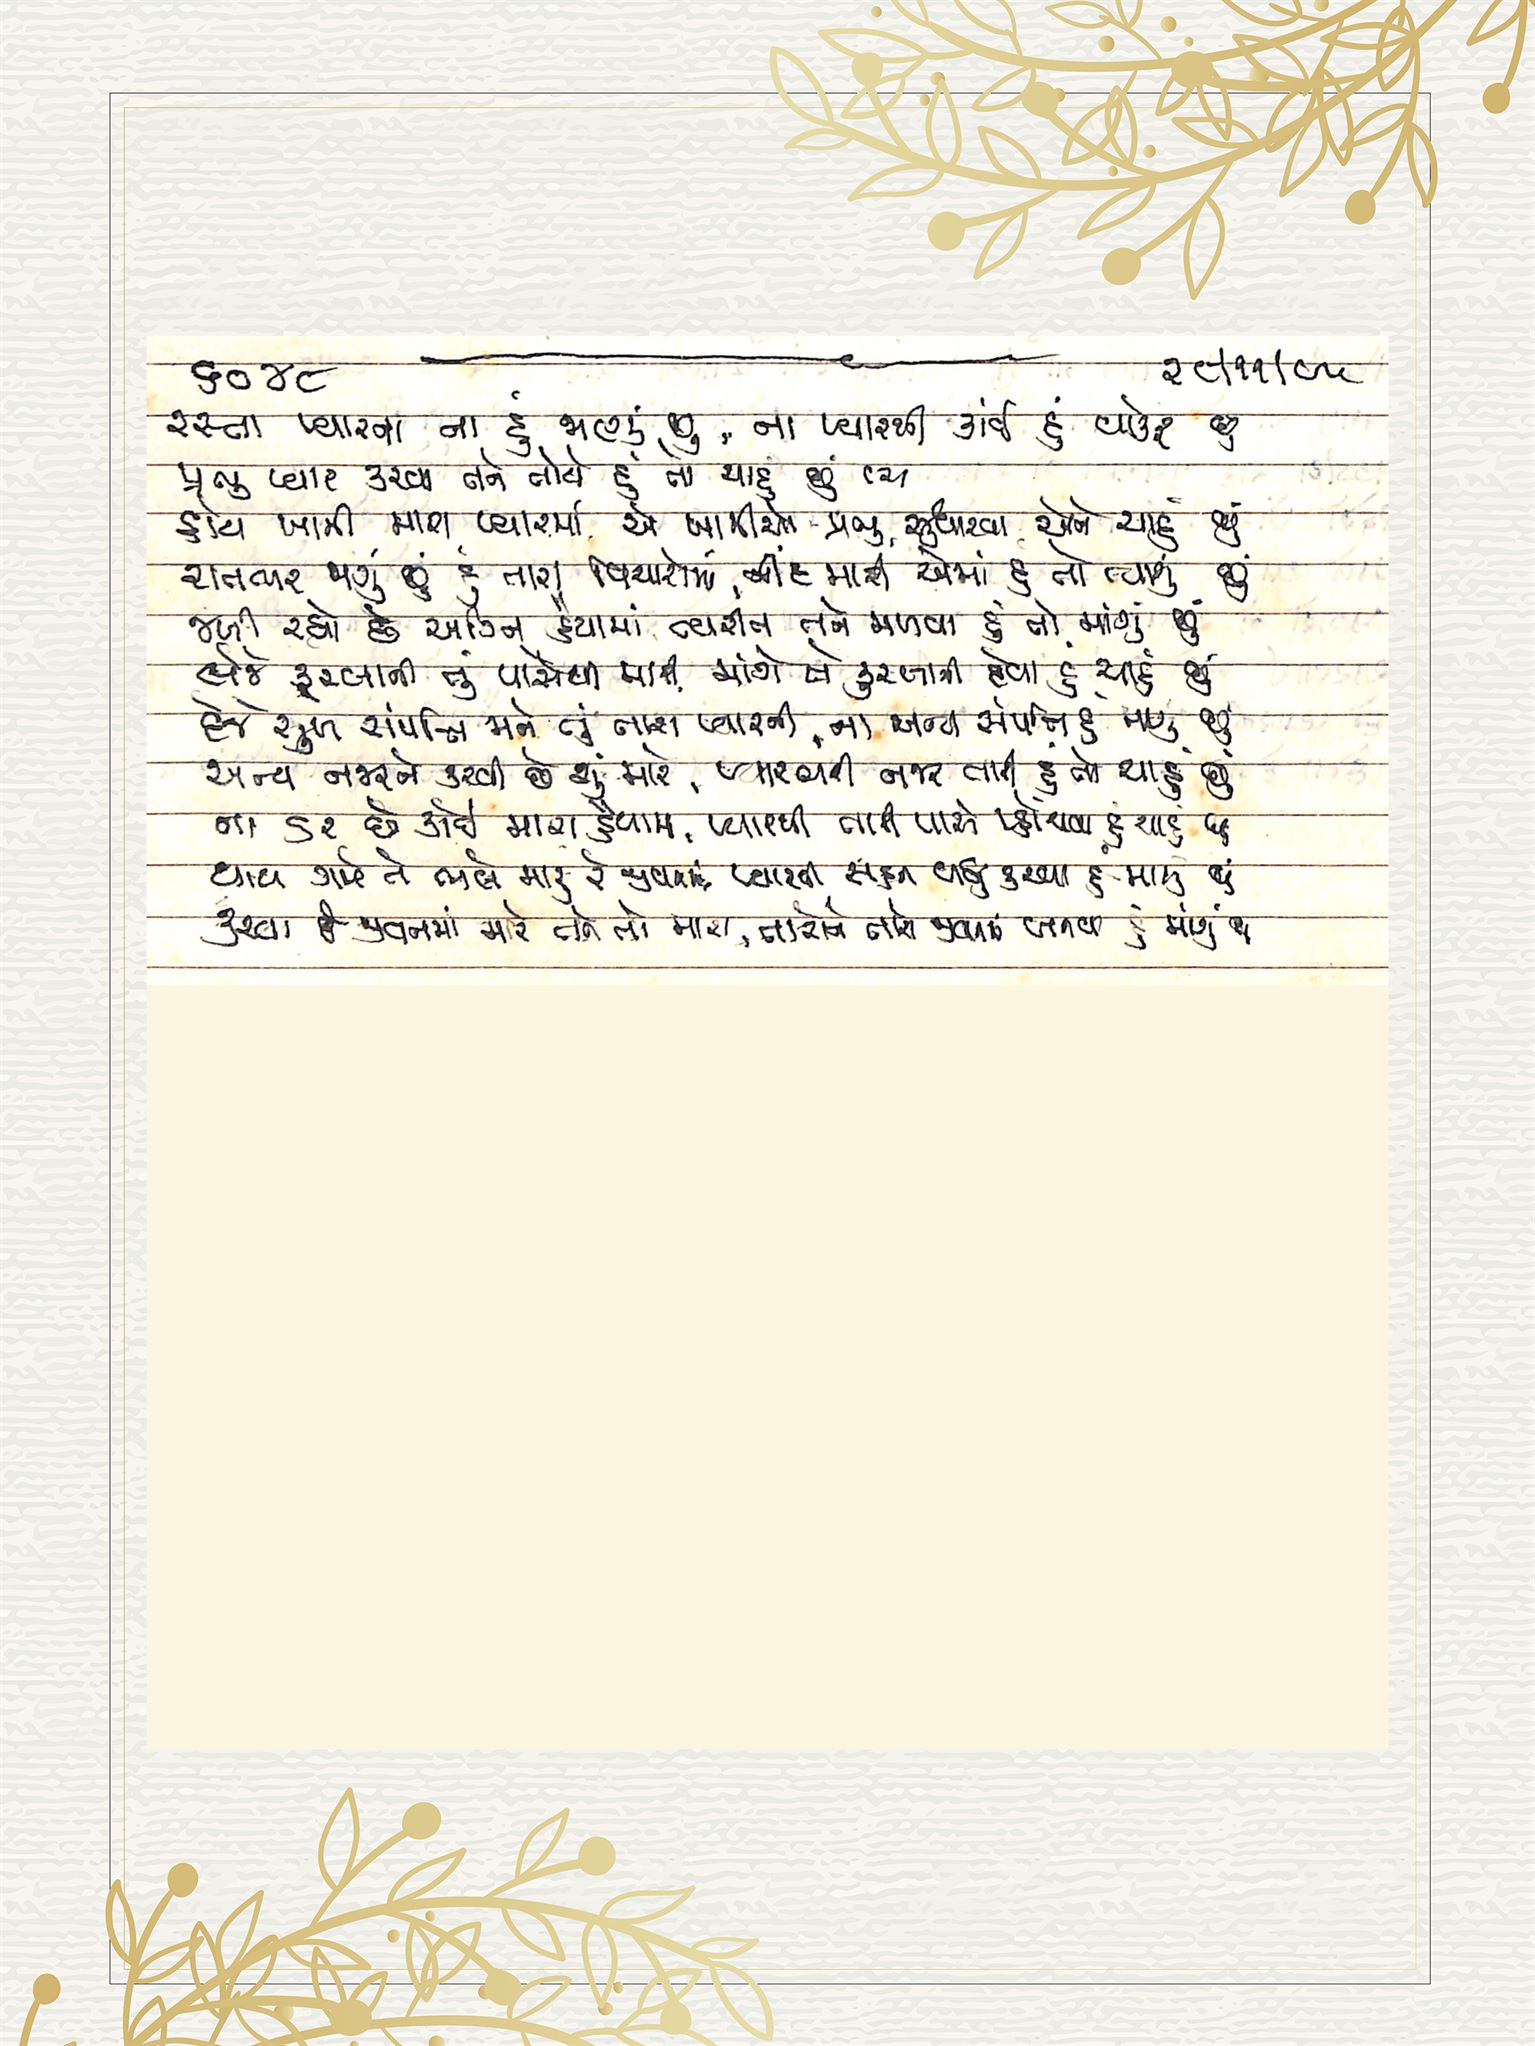 ૬૦૪૮ ૨૯/૧૧/૯૫
રસ્તા પ્યારના ના હું જાણું છું, ના પ્યારથી કાંઈ હું વાકેફ છું
પ્રભુ પ્યાર કરવા તને તોયે હું તો ચાહું છું
હોય ખામી મારા પ્યારમાં, એ ખામીએ પ્રભુ, સુધારવા એને ચાહું છું
રાતભર જાગું છું હું તારા વિચારોમાં, નીંદ મારી એમાં હું તો ત્યાગું છું
જલી રહ્યો છે અગ્નિ હૈયામાં ત્વરીત તને મળવા હું તો માંગું છું
લેજે કુરબાની તું પાસેથી મારી, માંગે એ કુરબાની દેવા હું ચાહું છું
દેજે સકળ સંપત્તિ મને તું તારા પ્યારની, ના અન્ય સંપત્તિ હું માગું છું
અન્ય નજરને કરવી છે શું મારે, પ્યારભરી નજર તારી હું તો ચાહું છું
ના ડર છે કોઈ મારા હૈયામાં, પ્યારથી તારી પાસે પહોંચવા હું ચાહું છું
થાય ગમે તે ભલે મારું રે જીવનમાં, પ્યારની સફળ બાજી કરવા હું માગું છું
કરવા છે જીવનમાં મારે તને તો મારા, તારોને તારો જીવનમાં બનવા હું માંગું છું